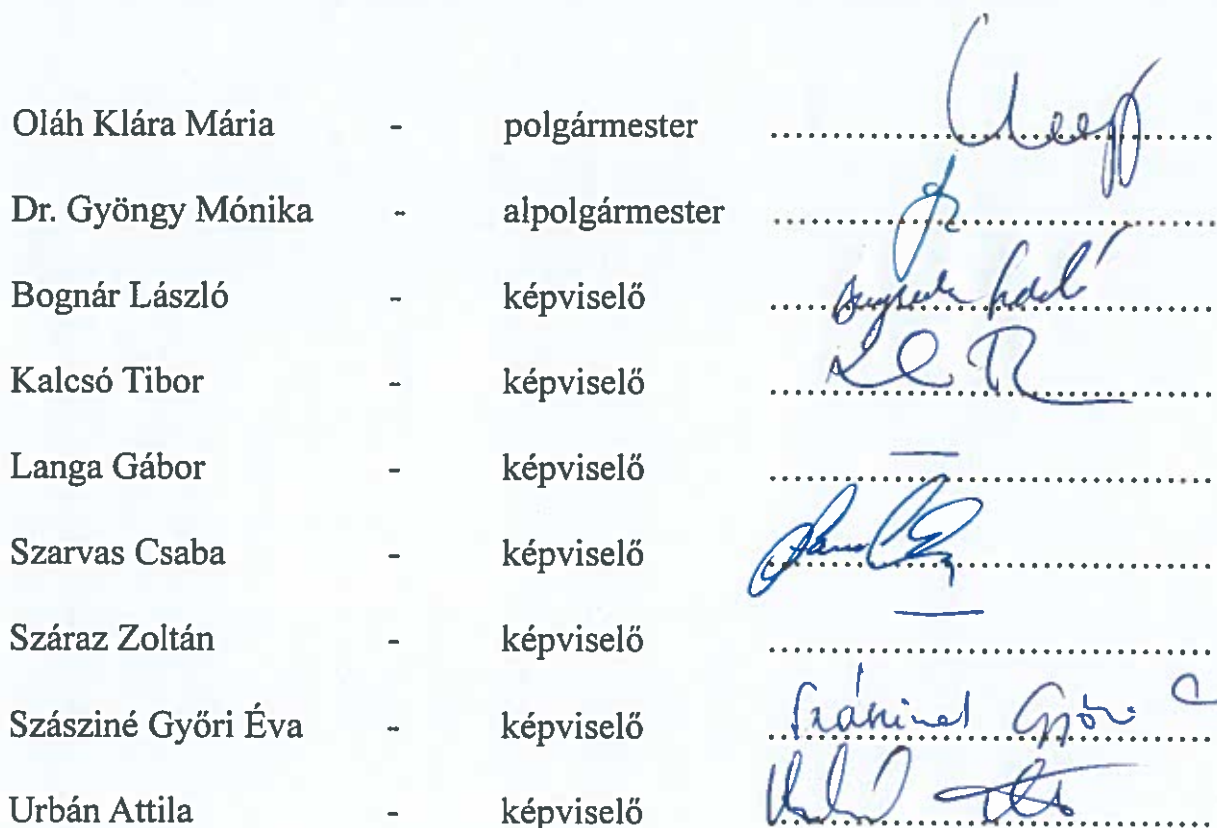 Oláh Klára Mária - polgármester ..........
Dr. Gyöngy Mónika - alpolgármester ..........
Bognár László - képviselő ..........
Kalcsó Tibor - képviselő ..........
Langa Gábor - képviselő ..........
Szarvas Csaba - képviselő ..........
Száraz Zoltán - képviselő ..........
Szásziné Győri Éva - képviselő .......... Szásziné Győri
Urbán Attila - képviselő ..........